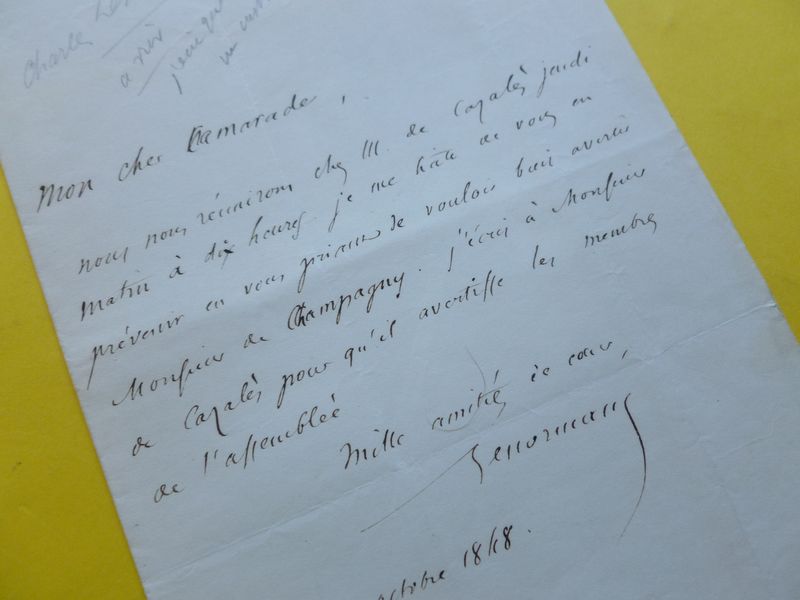 Charles
a
j'ai
un
Mon cher Camarade,
nous nous réunirons chez M. de Cazalès jeudi
matin à dix heures. je me hâte de vous en
prévenir en vous priant de vouloir bien avertir
Monsieur de Champagny. j'écris à Monsieur
de Cazalès pour qu'il avertisse les membres
de l'assemblée
Mille amitiés de cœur,
Lenormant
octobre 1848.